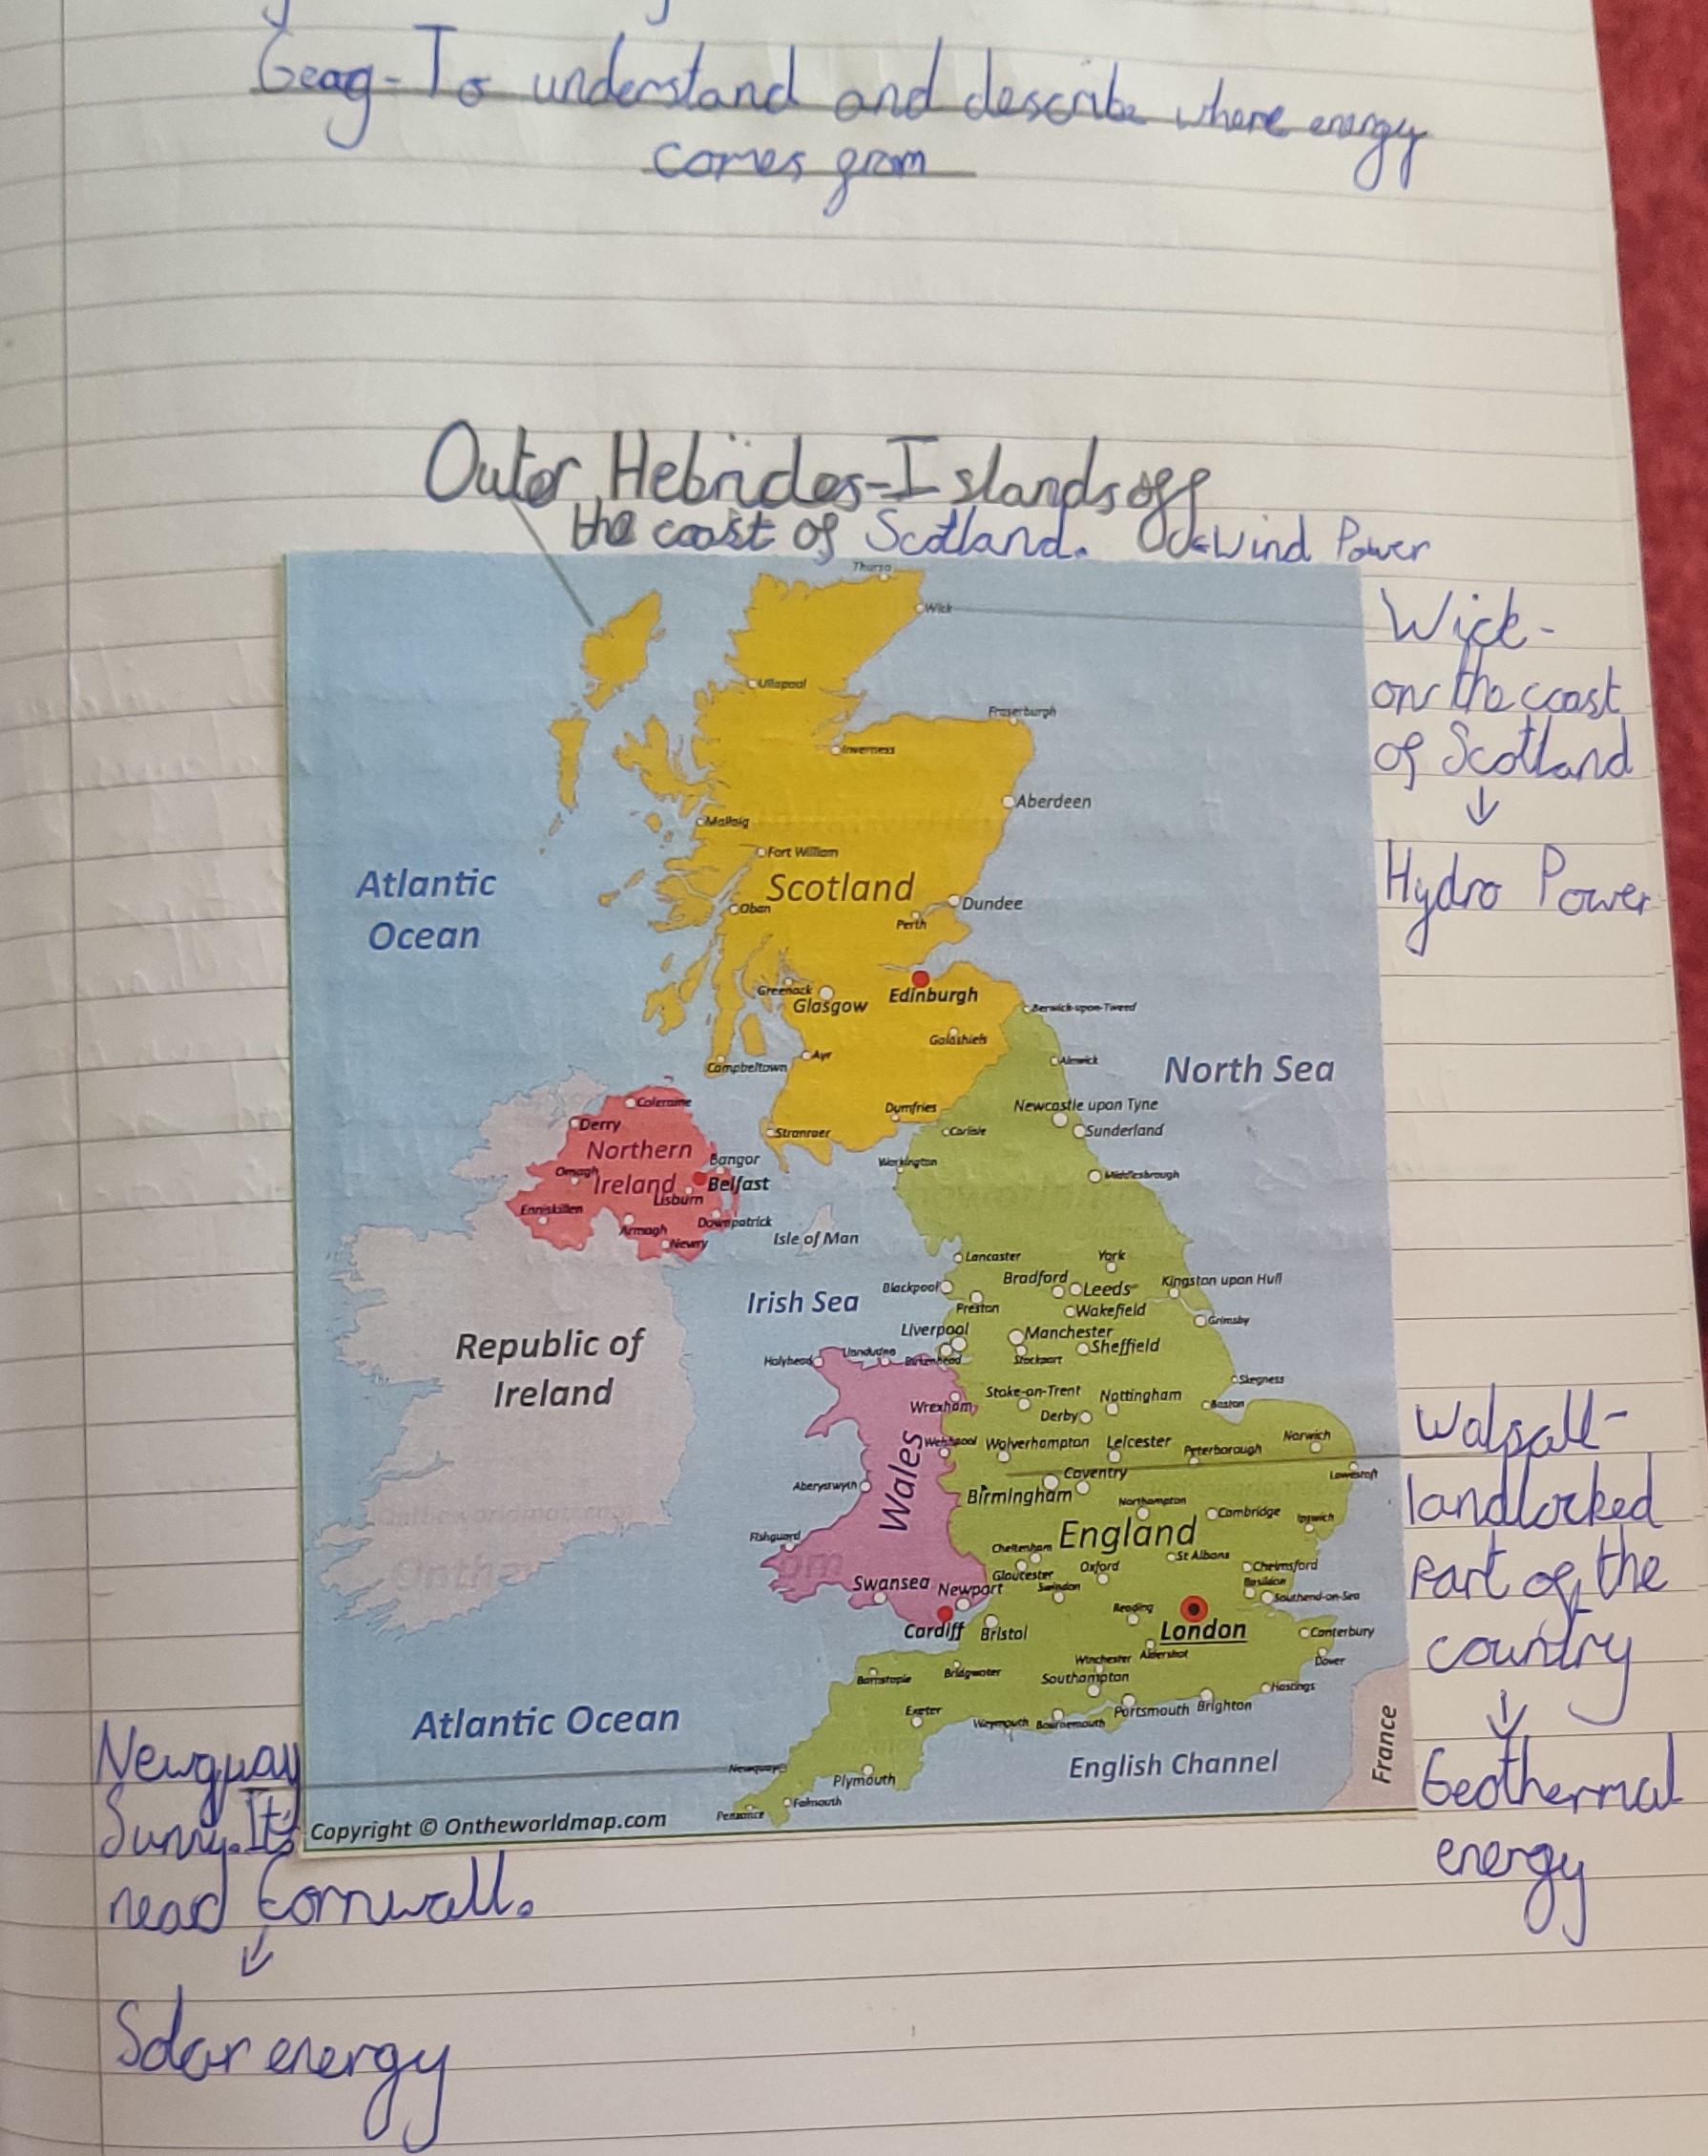 Geog - To understand and describe where energy
comes from
Outer Hebrides - Islands off
the coast of Scotland. Wind Power
Thurso
Wick
Wick -
on the coast
of Scotland
↓
Hydro Power
Ullapool
Fraserburgh
Inverness
Aberdeen
Mallaig
Fort William
Scotland
Atlantic
Ocean
Oban
Dundee
Perth
Greenock
Glasgow
Edinburgh
Berwick-upon-Tweed
Galashiels
Ayr
Campbeltown
Alnwick
North Sea
Coleraine
Derry
Dumfries
Newcastle upon Tyne
Stranraer
Carlisle
Sunderland
Northern
Ireland
Bangor
Workington
Omagh
Belfast
Middlesbrough
Lisburn
Enniskillen
Armagh
Downpatrick
Newry
Isle of Man
Lancaster
York
Blackpool
Bradford
Leeds
Kingston upon Hull
Irish Sea
Preston
Wakefield
Grimsby
Liverpool
Manchester
Republic of
Ireland
Holyhead
Llandudno
Birkenhead
Stockport
Sheffield
Skegness
Wrexham
Stoke-on-Trent
Nottingham
Derby
Boston
Welshpool
Wolverhampton
Leicester
Peterborough
Norwich
Walsall -
landlocked
part of the
country
↓
Geothermal
energy
Wales
Aberystwyth
Birmingham
Coventry
Lowestoft
Northampton
Cambridge
Ipswich
Fishguard
England
Cheltenham
Gloucester
Oxford
St Albans
Chelmsford
Swansea
Newport
Swindon
Basildon
Southend-on-Sea
Reading
Cardiff
Bristol
London
Canterbury
Barnstaple
Bridgwater
Winchester
Aldershot
Dover
Southampton
Hastings
Exeter
Weymouth
Bournemouth
Portsmouth
Brighton
Atlantic Ocean
English Channel
France
Newquay
Plymouth
Penzance
Falmouth
Copyright © Ontheworldmap.com
Newquay
Sunny. It's
near Cornwall.
↓
Solar energy